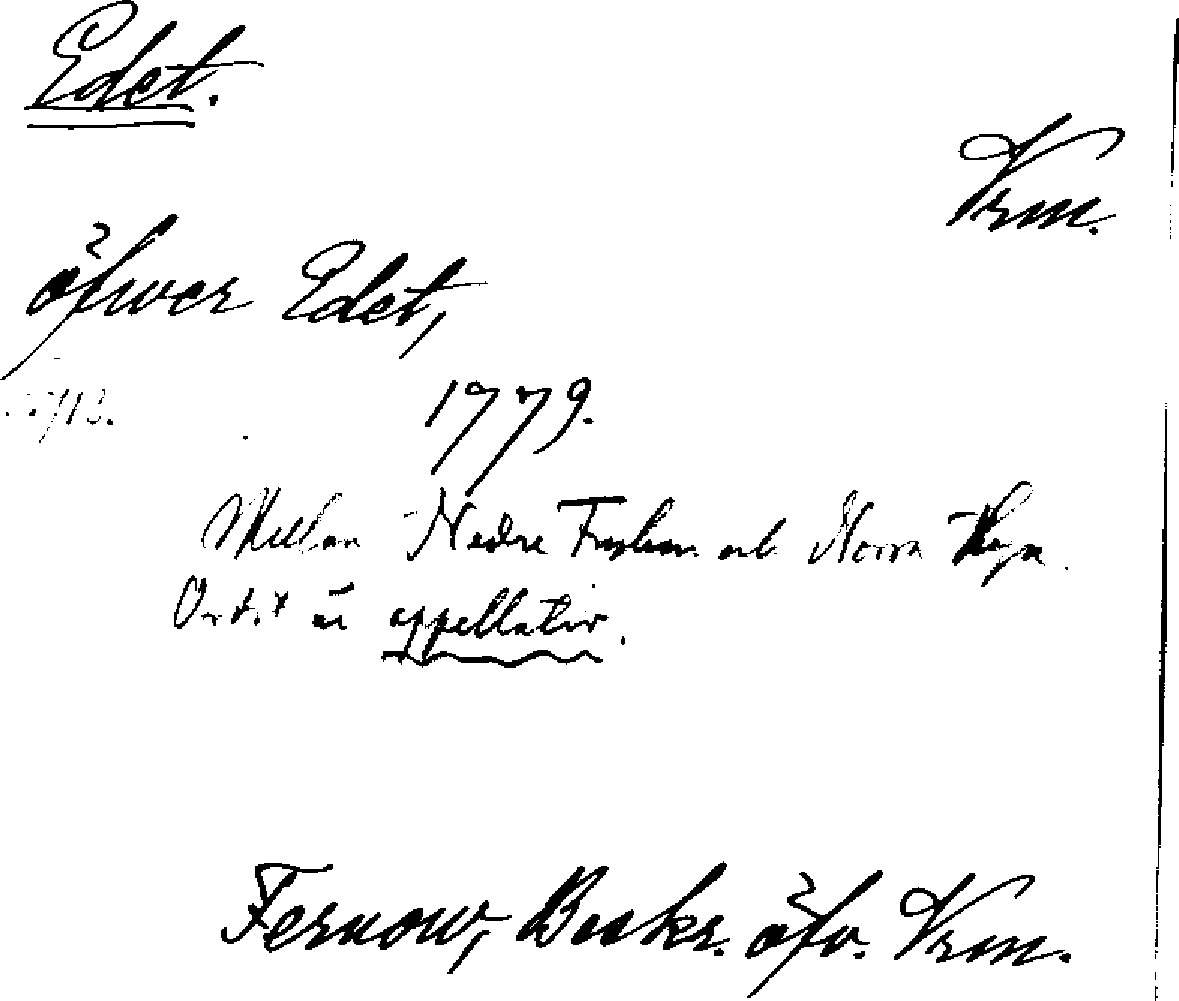 Edet.
Vrm.
öfwer Edet,
1779.
Mellan Nedre Fryken och Norra Hyn.
Ordet är appellativ.
Fernow, Beskr. öfv. Vrm.